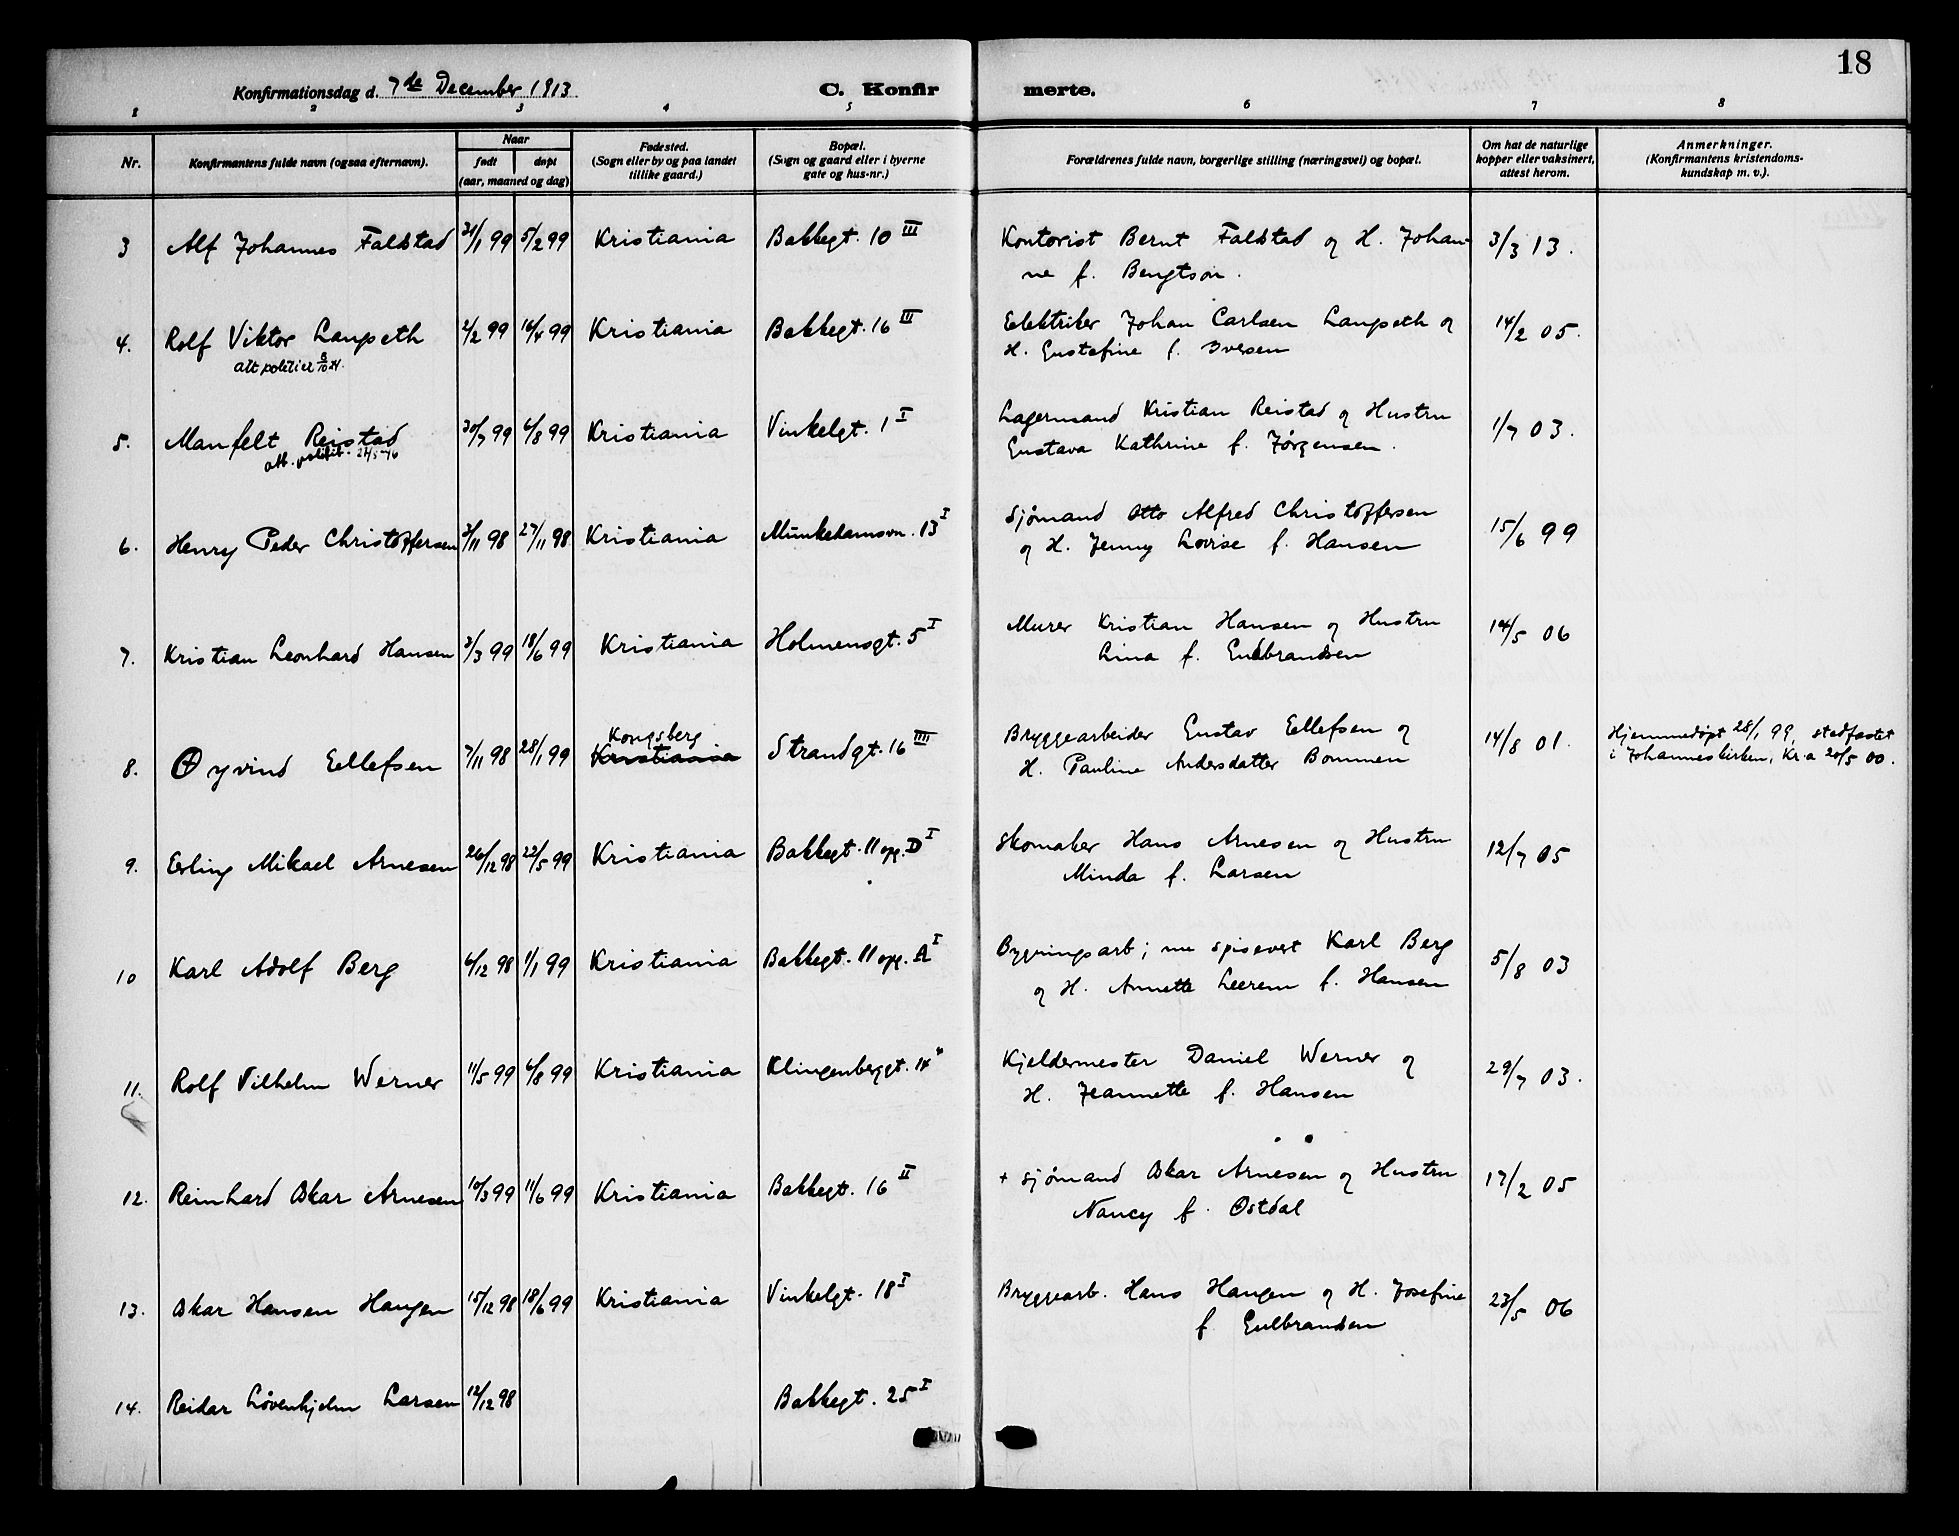 18
Konfirmationsdag d. 7de December 1913 C. Konfir merte.
1 2 3 4 5 6 7 8
Nr. Konfirmantens fulde navn (ogsaa efternavn). Naar født døpt (aar, maaned og dag) Fødested. (Sogn eller by og paa landet tillike gaard.) Bopæl. (Sogn og gaard eller i byerne gate og hus-nr.) Forældrenes fulde navn, borgerlige stilling (næringsvei) og bopæl. Om hat de naturlige kopper eller vaksinert, attest herom. Anmerkninger. (Konfirmantens kristendoms-kundskap m. v.).
3 Alf Johannes Faldstad 21/1 99 5/2 99 Kristiania Bakkegt. 10 III Kontorist Bernt Faldstad og H. Johan- 3/3 13.
ne f. Bengtson.
4. Rolf Viktor Langseth 2/2 99 16/4 99 Kristiania Bakkegt. 16 III Elektriker Johan Carlsen Langseth og 14/2 05.
att politiet 8/10 24. H. Gustafine f. Iversen
5. Manfelt Reistad 30/7 99 6/8 99 Kristiania Vinkelgt. 1 I Lagermand Kristian Reistad og Hustru 1/7 03.
att. politiet 21/5-46 Gustava Kathrine f. Jørgensen.
6. Henry Peder Christoffersen 3/11 98 27/11 98 Kristiania Munkedamsvn. 13 I Sjømand Otto Alfred Christoffersen 15/6 99
og H. Jenny Lovise f. Hansen
7. Kristian Leonhard Hansen 3/3 99 18/6 99 Kristiania Holmensgt. 5 I Murer Kristian Hansen og Hustru 14/5 06
Lina f. Gudbrandsen
8. Øyvind Ellefsen 7/11 98 28/1 99 Kongsberg Kristiania Strandgt. 16 III Bryggearbeider Gustav Ellefsen og 14/8 01. Hjemmedøpt 28/1 99, stadfæstet
H. Pauline Andersdatter Bommen i Johanneskirken, Kr.a 20/5 00.
9. Erling Mikael Arnesen 26/12 98 22/5 99 Kristiania Bakkegt. 11 opg. D I Skomaker Hans Arnesen og Hustru 12/7 05
Minda f. Larsen
10 Karl Adolf Berg 6/12 98 1/1 99 Kristiania Bakkegt. 11 opg. A I Bygningsarb; nu spisevert Karl Berg 5/8 03
og H. Annette f. Hansen
11. Rolf Vilhelm Werner 11/5 99 6/8 99 Kristiania Klingenberggt. Kjeldermester Daniel Werner og 29/7 03.
H. Jeannette f. Hansen
12. Reinhard Oskar Arnesen 10/3 99 11/6 99 Kristiania Bakkegt. 16 II + Sjømand Oskar Arnesen og Hustru 17/2 05
Nancy f. Østdal
13. Oskar Hansen Haugen 15/12 98 18/6 99 Kristiania Vinkelgt. 18 I Bryggearb. Hans Haugen og H. Josefine 23/5 06
f Gulbrandsen
14. Reidar Løvenhjelm Larsen 12/12 98 Bakkegt. 25 I